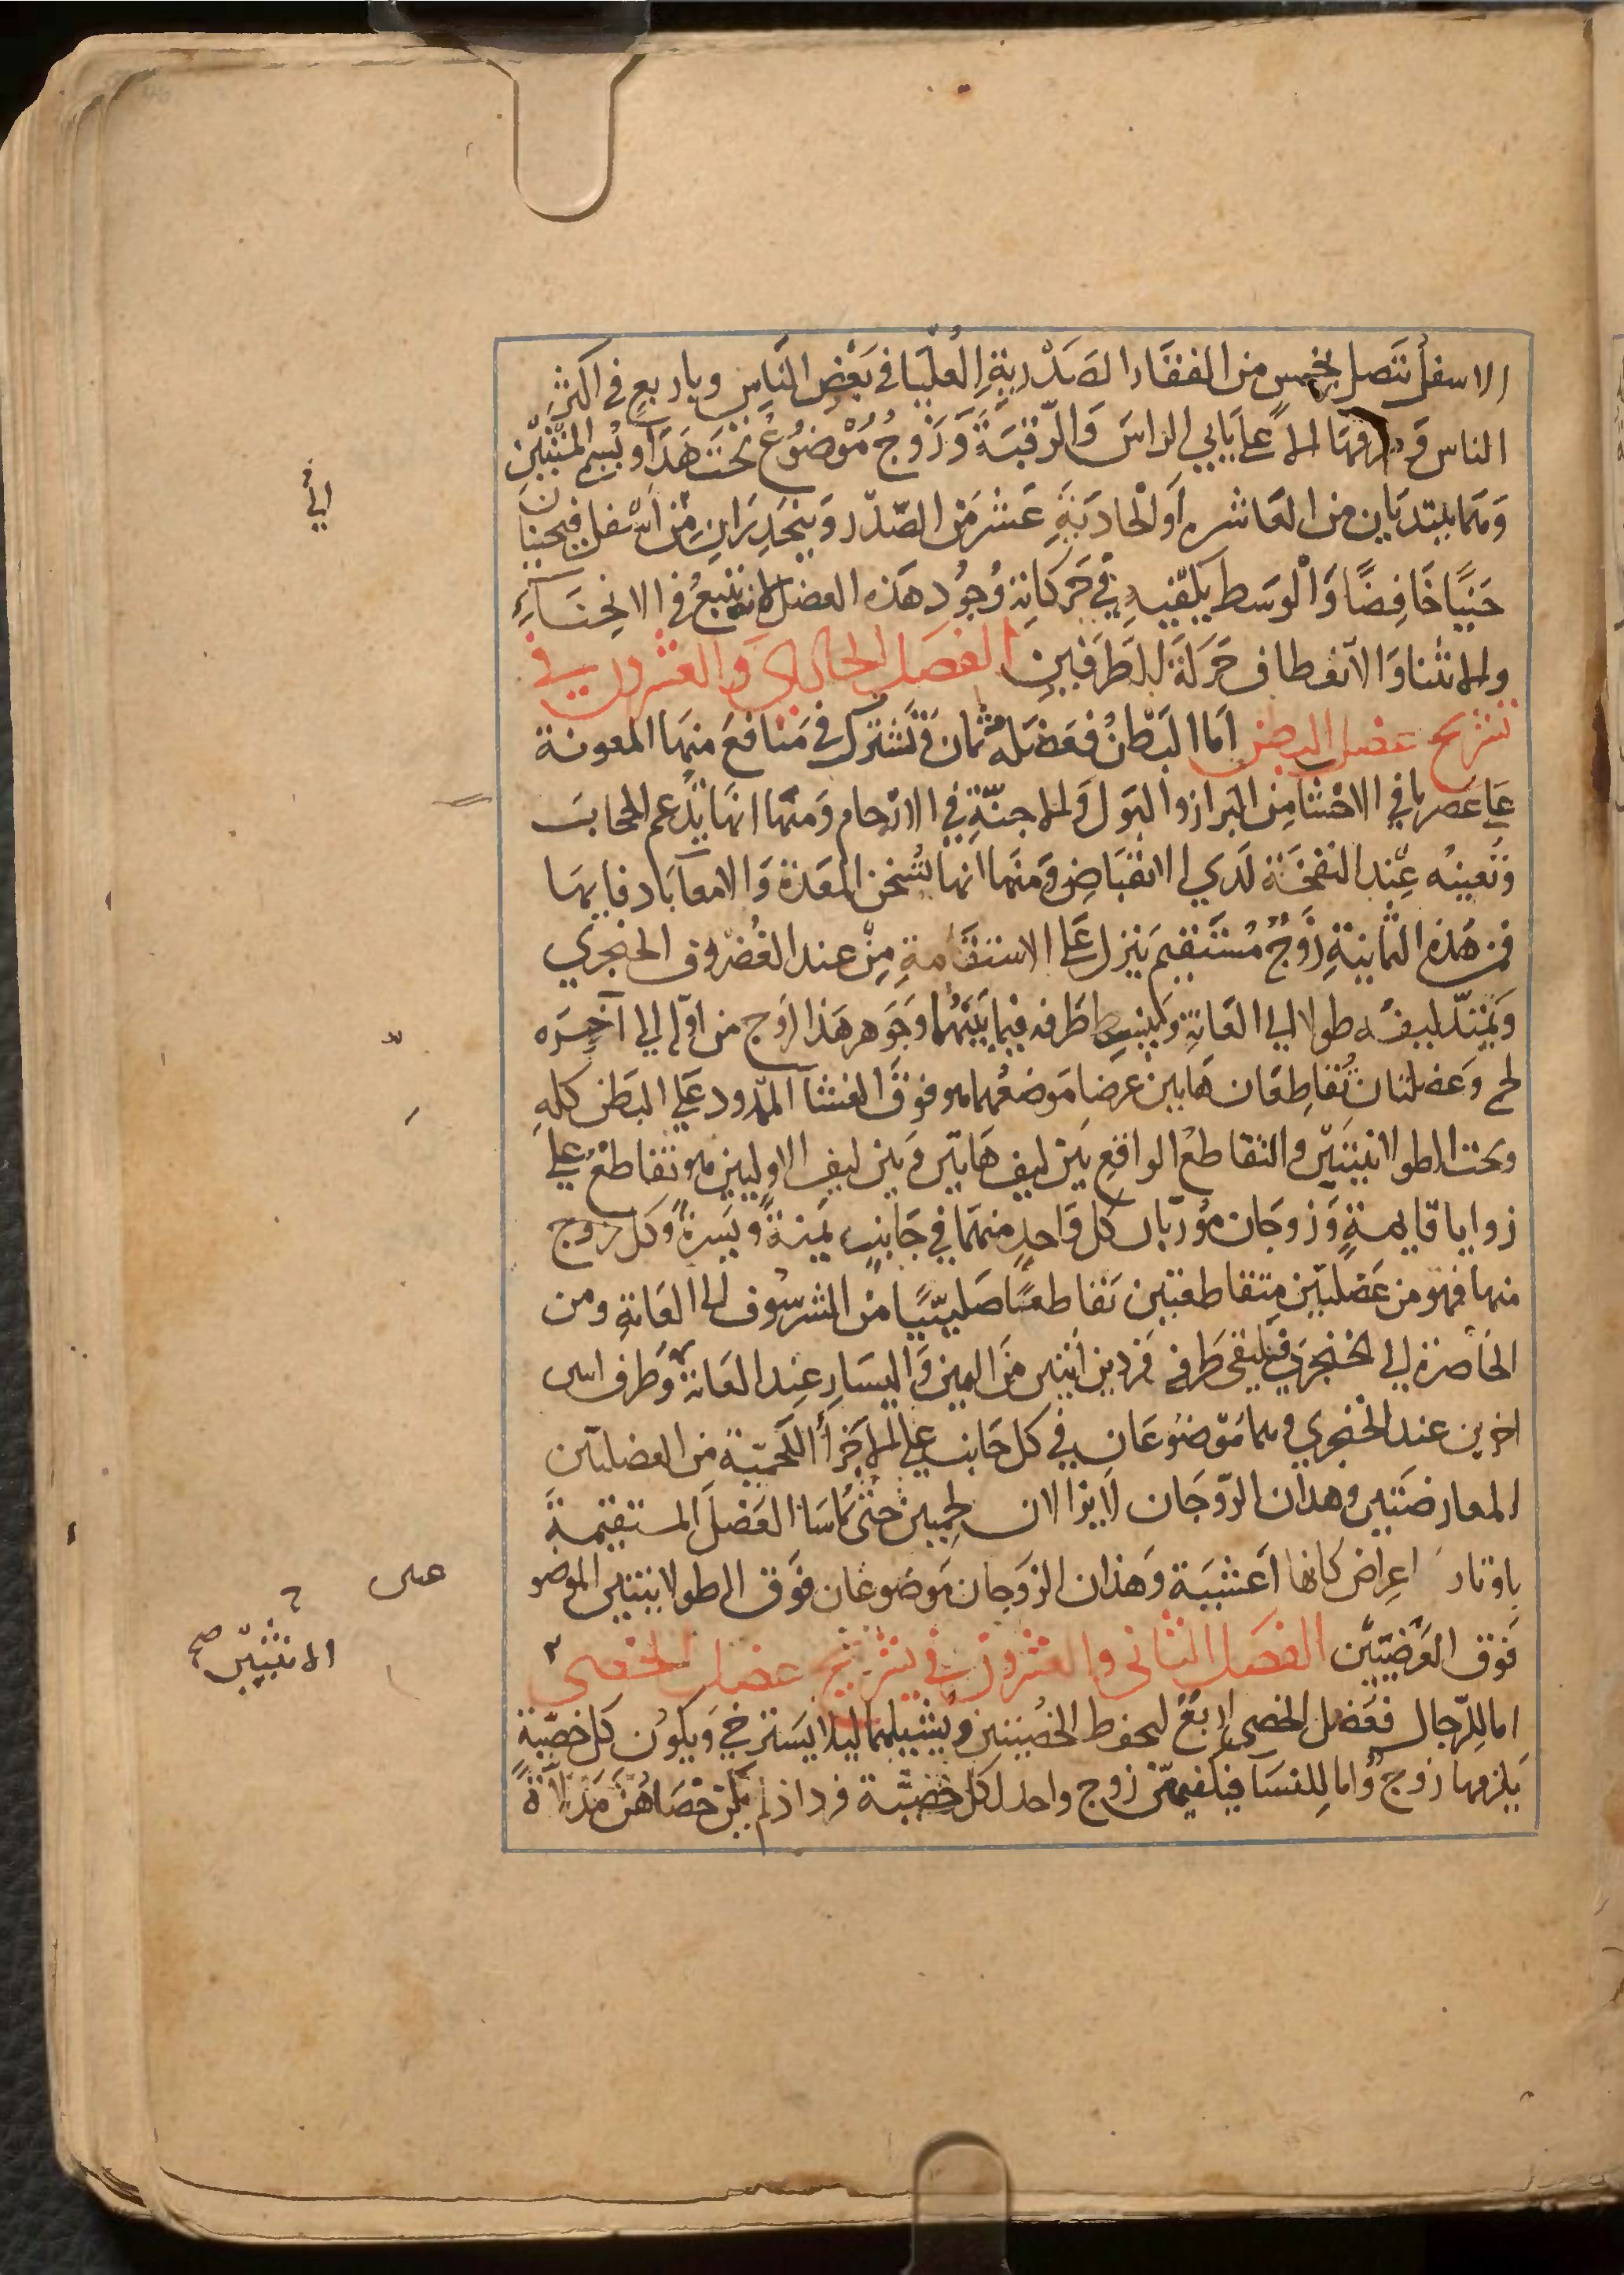 الاسفل تتصل بخمس من الفقار الصدرية العليا في بعض الناس وباربع في اكثر
الناس وطرفهما الاعلى ياتي الراس والرقبة وزوج موضوع تحت هذا ويسم المتنين
وهما يبتديان من العاشرة او الحادية عشر من الصدر وينحدران من اسفل فيحنيان
حنيا خافضا والوسط يكفيه في حركاته وجود هذه العضل لانه يتبع في الانحناء
والانثنا والانعطاف حركة الطرفين الفصل الحادي والعشرون في
تشريح عضل البطن اما البطن فعضله ثمان وتشترك في منافع منها المعونة
على عصر ما في الاحشا من البراز والبول والاجنة في الارحام ومنها انها تدعم الحجاب
وتعينه عند النفخة لدي الانقباض ومنها انها تسخن المعدة والامعا بادفايها
فمن هذه الثمانية زوج مستقيم ينزل على الاستقامة من عند الغضروف الخنجري
ويمتد ليفه طولا الي العانة وينبسط طرفه فيما بينهما وجوهر هذا الزوج من اوله الي آخره
لحم وعضلتان تقاطعان هاتين عرضا موضعهما هو فوق الغشا الممدود علي البطن كله
وتحت الطولانيتين والتقاطع الواقع بين ليف هاتين وبين ليف الاوليين هو تقاطع علي
زوايا قايمة وزوجان موربان كل واحد منهما في جانب يمنة ويسرة وكل زوج
منها فهو من عضلتين متقاطعتين تقاطعا صليبيا من الشرسوف الى العانة ومن
الخاصرة الي الخنجري فيلتقى طرفه فردين اثنين من اليمين واليسار عند العانة وطرف اسى
اخرين عند الخنجري وهما موضوعان في كل جانب علي الاجزأ اللحمية من العضلتين
المعارضتين وهذان الزوجان لا يزالان لحميين حتى تماسا العضل المستقيمة
باوتار اعراض كانها اغشية وهذان الزوجان موضوعان فوق الطولانيتين الموضو
فوق العرضيتين الفصل الثانى والعشرون في تشريح عضل الخصى
اما للرجال فعضل الخصى اربع لحفظ الخصيتين ويشيلهما ليلا يسترخي ويكون كل خصية
يلزمها زوج واما للنسا فيكفيهن زوج واحد لكل خصية فرد اذ لم يكن خصاهن مدلاة
الي
على
الانثيين صح